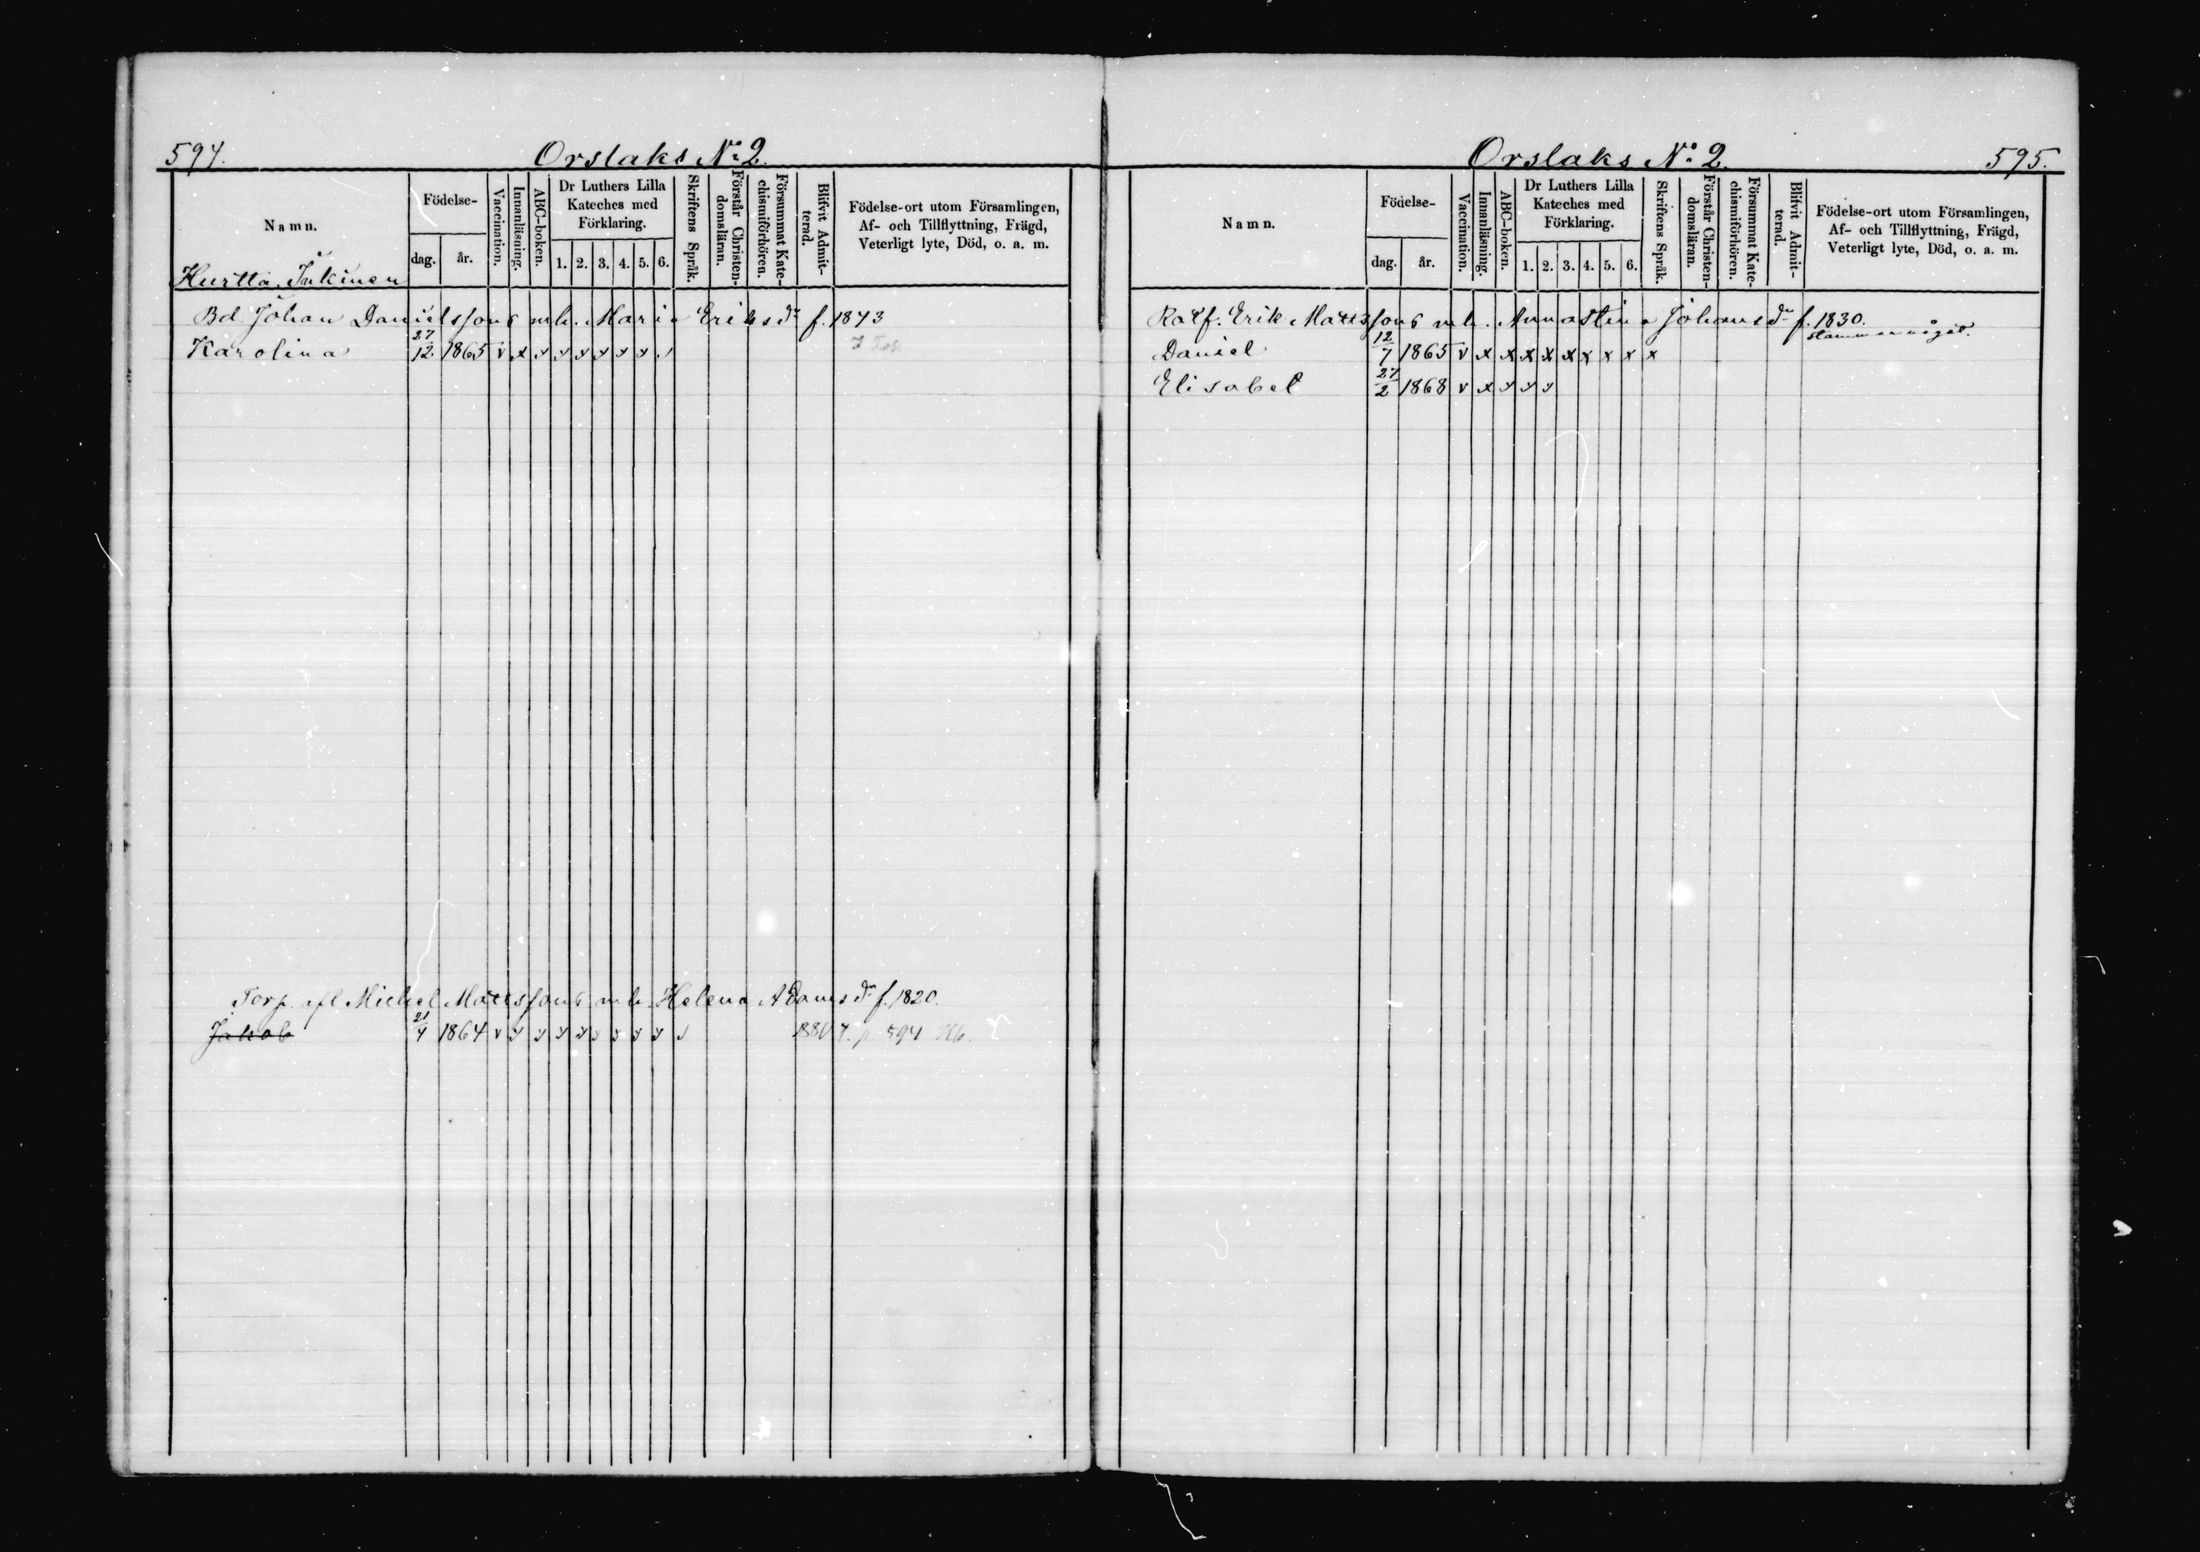 594. Orslaks No 2.
Namn.
Födelse-
dag.
år.
Vaccination.
Innanläsning.
ABC-boken.
Dr Luthers Lilla
Kateches med
Förklaring.
1. 2. 3. 4. 5. 6.
Skriftens Språk.
Förstår Christen-
domsläran.
Försummat Kate-
chismiförhören.
Blifvit Admit-
terad.
Födelse-ort utom Församlingen,
Af- och Tillflyttning, Frägd,
Veterligt lyte, Död, o. a. m.
Hurtta, Jukinen
Bd. Johan Danielssons m h. Maria Eriks dr f. 1843
Karolina 27/12 1865 v x y y y y y y y
Torp. afl Michel Mattssons m h. Helena Adams dr f. 1820.
Jakob 21/4 1864 v y y y y y y y y p. 594
Orslaks No 2. 595.
Namn.
Födelse-
dag.
år.
Vaccination.
Innanläsning.
ABC-boken.
Dr Luthers Lilla
Kateches med
Förklaring.
1. 2. 3. 4. 5. 6.
Skriftens Språk.
Förstår Christen-
domsläran.
Försummat Kate-
chismiförhören.
Blifvit Admit-
terad.
Födelse-ort utom Församlingen,
Af- och Tillflyttning, Frägd,
Veterligt lyte, Död, o. a. m.
Erik Mattssons m h. Annastina Johans dr f. 1830.
Daniel 12/7 1865 v x x x x x x x x x stammar något.
Elisabet 27/2 1868 v x y y y